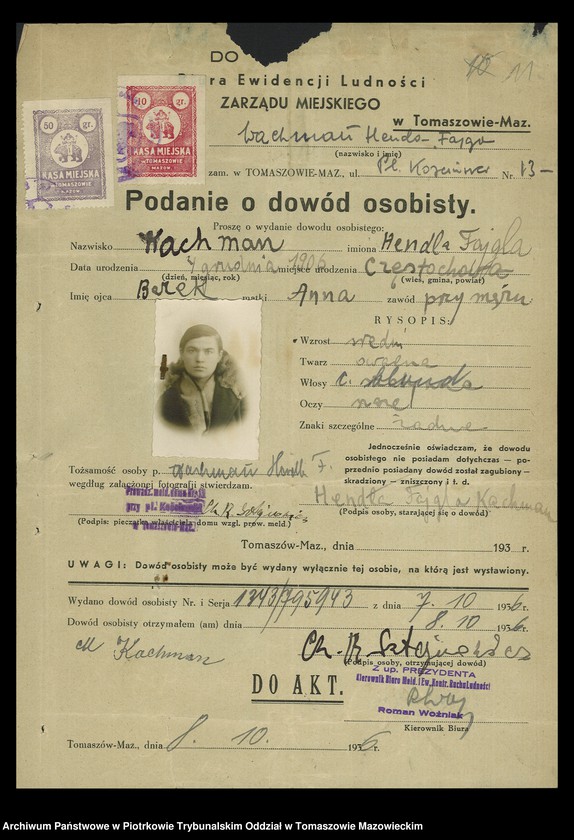 DO
Biura Ewidencji Ludności
ZARZĄDU MIEJSKIEGO
w Tomaszowie-Maz.
11.
50 gr.
KASA MIEJSKA
w TOMASZOWIE
MAZOW.
10 gr.
KASA MIEJSKA
w TOMASZOWIE
MAZOW.
Wachman Hendla Fajga
(nazwisko i imię)
zam. w TOMASZOWIE-MAZ., ul. Pl. Kościuszki Nr. 13 —
Podanie o dowód osobisty.
Proszę o wydanie dowodu osobistego:
Nazwisko Wachman imiona Hendla Fajgla
Data urodzenia 4 grudnia 1906 miejsce urodzenia Częstochowa
(dzień, miesiąc, rok) (wieś, gmina, powiat)
Imię ojca Berek matki Anna zawód przy mężu
RYSOPIS:
Wzrost średni
Twarz owalna
Włosy c.
Oczy
Znaki szczególne żadne
Jednocześnie oświadczam, że dowodu
osobistego nie posiadam dotychczas — po-
przednio posiadany dowód został zagubiony —
skradziony — zniszczony i t. d.
Tożsamość osoby p. Wachman Hendla F.
według załączonej fotografii stwierdzam.
Hendla Fajgla Wachman
(Podpis osoby, starającej się o dowód)
przy pl. Kościuszki
w Tomaszowie-Maz.
Ch. R.
(Podpis: pieczątka właściciela domu wzgl. prow. meld.)
Tomaszów-Maz., dnia 193 r.
UWAGI: Dowód osobisty może być wydany wyłącznie tej osobie, na którą jest wystawiony.
Wydano dowód osobisty Nr. i Serja 1343/795943 z dnia 7. 10 1936 r.
Dowód osobisty otrzymałem (am) dnia 8. 10 1936 r.
Ch. R.
(Podpis osoby, otrzymującej dowód)
DO AKT.
Z up. PREZYDENTA
Kierownik Biura Meld. i Ew. Kontr. Ruchu Ludności
Roman Woźniak
Kierownik Biura
Tomaszów-Maz., dnia 8. 10. 1936 r.
Archiwum Państwowe w Piotrkowie Trybunalskim Oddział w Tomaszowie Mazowieckim